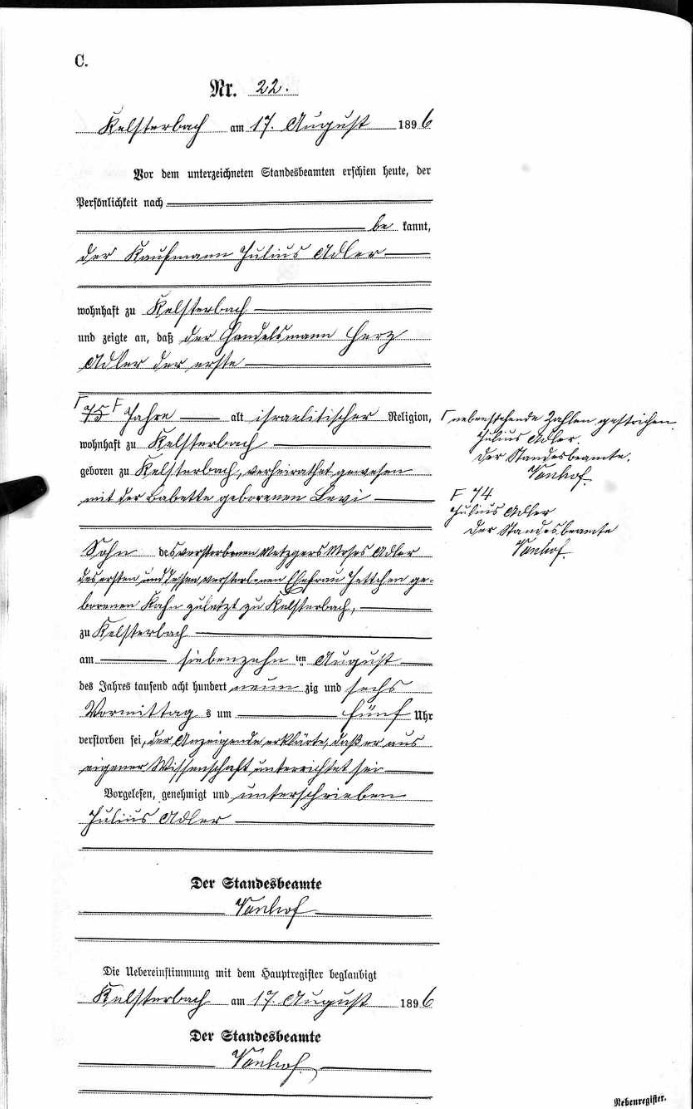 C.
Nr. 22.
Kelsterbach am 17. August 1896
Vor dem unterzeichneten Standesbeamten erschien heute, der
Persönlichkeit nach
be kannt,
der Kaufmann Julius Adler
wohnhaft zu Kelsterbach
und zeigte an, daß der Handelsmann Herz
Adler der erste
Γ 75 F Jahre alt israelitischer Religion,
wohnhaft zu Kelsterbach
geboren zu Kelsterbach, verheirathet gewesen
mit der Babette geborenen Levi
Sohn des verstorbenen Metzgers Moses Adler
des ersten und dessen verstorbenen Ehefrau Jettchen ge-
borenen Kahn zuletzt zu Kelsterbach,
zu Kelsterbach
am siebenzehn ten August
des Jahres tausend acht hundert neun zig und sechs
Vormittag s um fünf Uhr
verstorben sei, der Anzeigende erklärte, daß er aus
eigener Wissenschaft unterrichtet sei
Vorgelesen, genehmigt und unterschrieben
Julius Adler
Der Standesbeamte
Vonhof
Die Uebereinstimmung mit dem Hauptregister beglaubigt
Kelsterbach am 17. August 1896
Der Standesbeamte
Vonhof.
Γ nebenstehende Zahlen gestrichen.
Julius Adler.
Der Standesbeamte.
Vonhof.
F 74
Julius Adler
Der Standesbeamte
Vonhof.
Nebenregister.